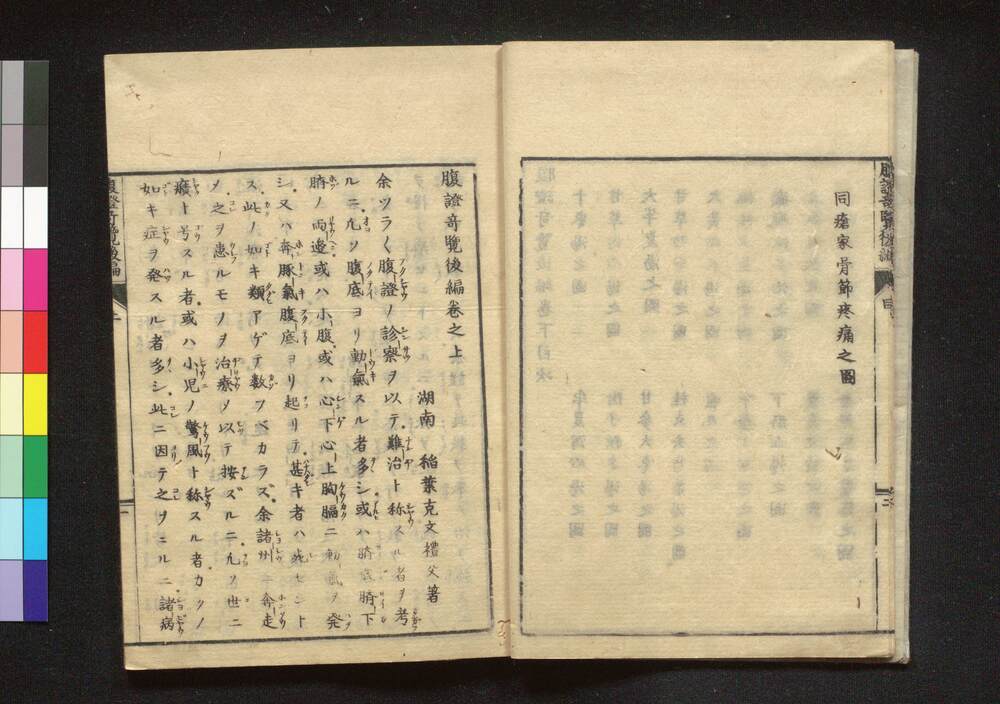 同瘡家骨節疼痛之圖
腹證奇覽後編
腹證奇覽後編卷之上
湖南　稲葉克文禮父著
余ツラ〱腹證ノ診察ヲ以テ難治ト称スル者ヲ考
ルニ凡ソ腹底ヨリ動氣スル者多シ或ハ臍底臍下
臍ノ両邉或ハ小腹或ハ心下心上胸膈ニ動氣ヲ発
シ又ハ奔豚氣腹底ヨリ起リテ甚キ者ハ死セント
ス此ノ如キ類アゲテ数ツベカラズ余諸州ニ奔走
メ之ヲ患ルモノヲ治療メ以テ按ズルニ凡ソ世ニ
癪ト号スル者或ハ小児ノ驚風ト称スル者カクノ
如キ症ヲ発スル者多シ此ニ因テ之ヲコルニ諸病
腹證奇覽後編